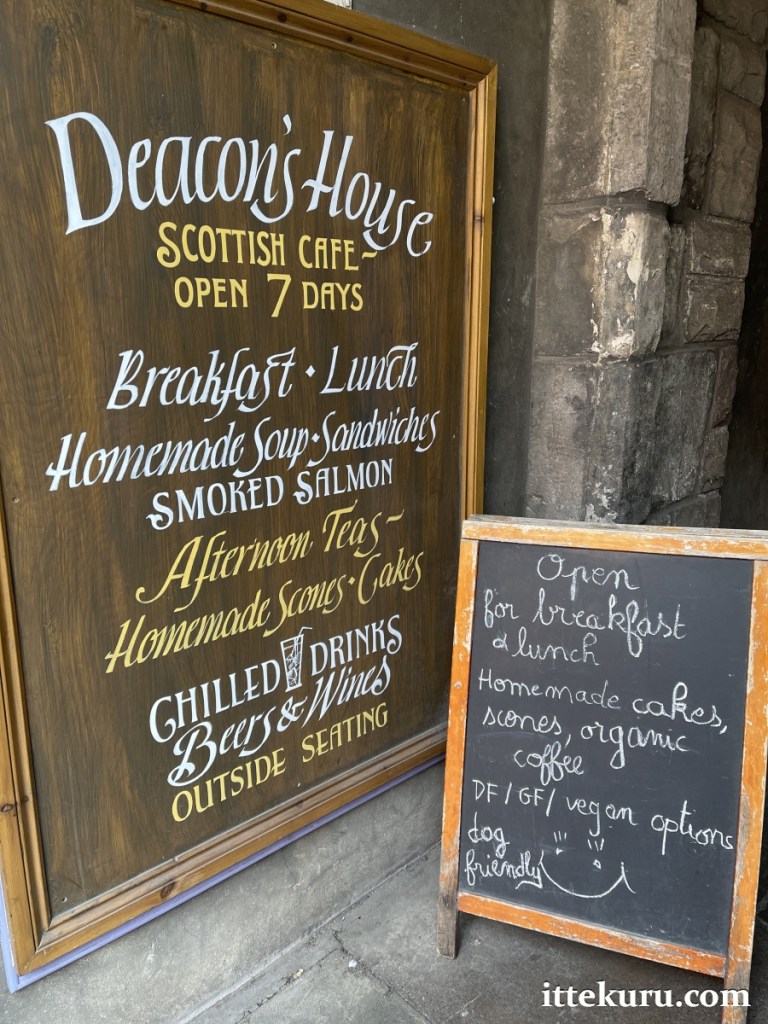 Deacon's House
SCOTTISH CAFE~
OPEN 7 DAYS
Breakfast · Lunch
Homemade Soup · Sandwiches
SMOKED SALMON
Afternoon Teas~
Homemade Scones · Cakes
CHILLED DRINKS
Beers & Wines
OUTSIDE SEATING
Open
for breakfast
& lunch
Homemade cakes,
scones, organic
coffee
DF/GF/vegan options
dog
friendly
ittekuru.com